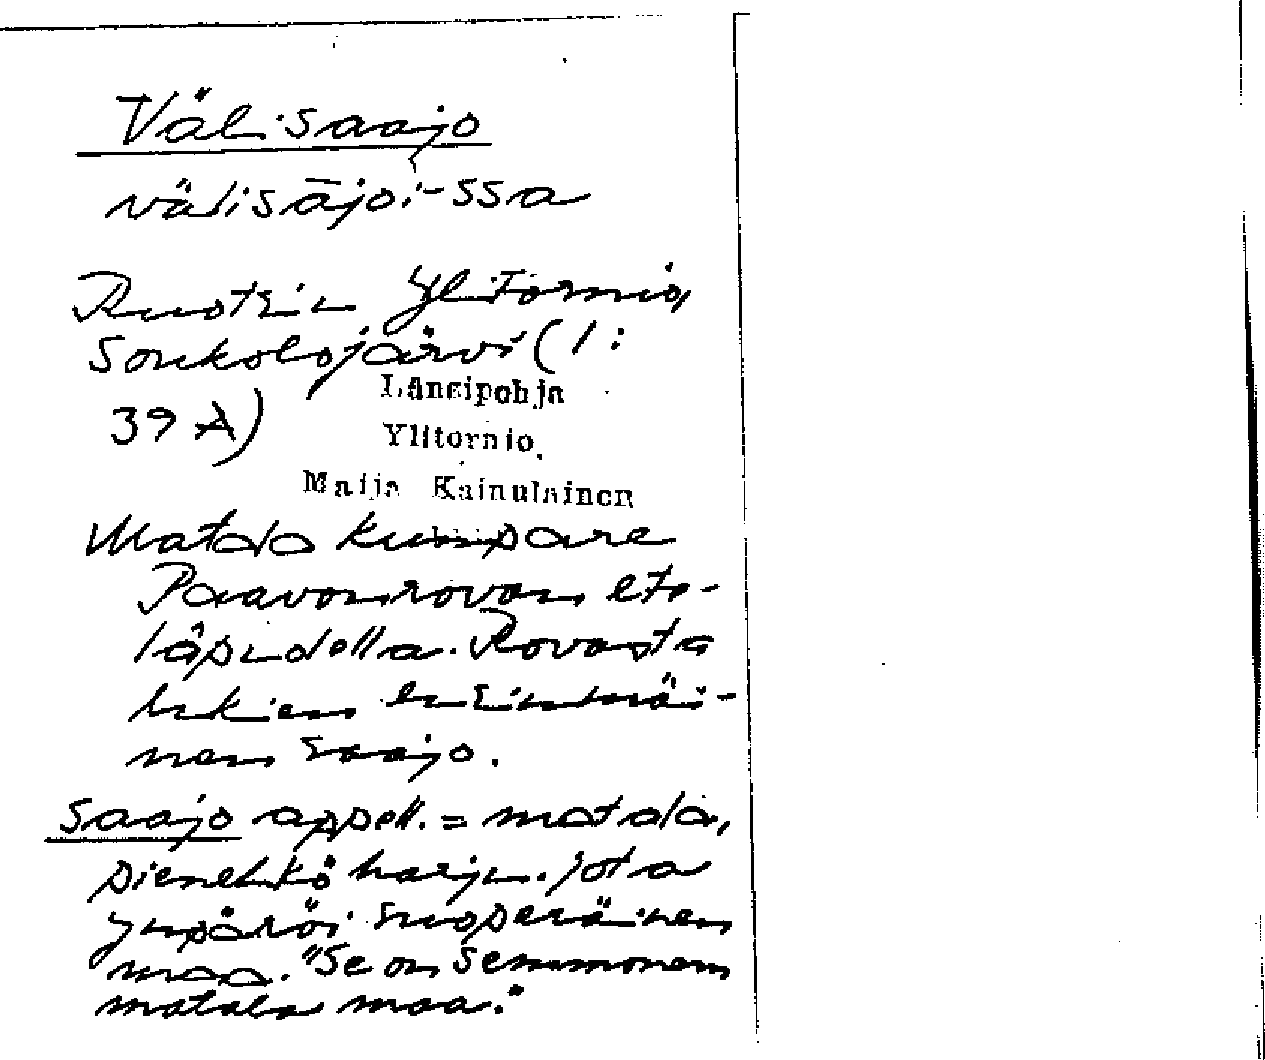 Välisaajo
välisājoi-ssa
Ruotsin Ylitornio,
Soukolojärvi (1:
39 A)
Länsipohja
Ylitornio.
Maija Kainulainen
Matala kumpare
Paavonrovan ete-
läpuolella. Rovasta
lukien ensimmäi-
nen saajo.
saajo appell. = matala,
pienehkö harju. jota
ympäröi suoperäinen
maa. "Se on semmonen
matala maa."